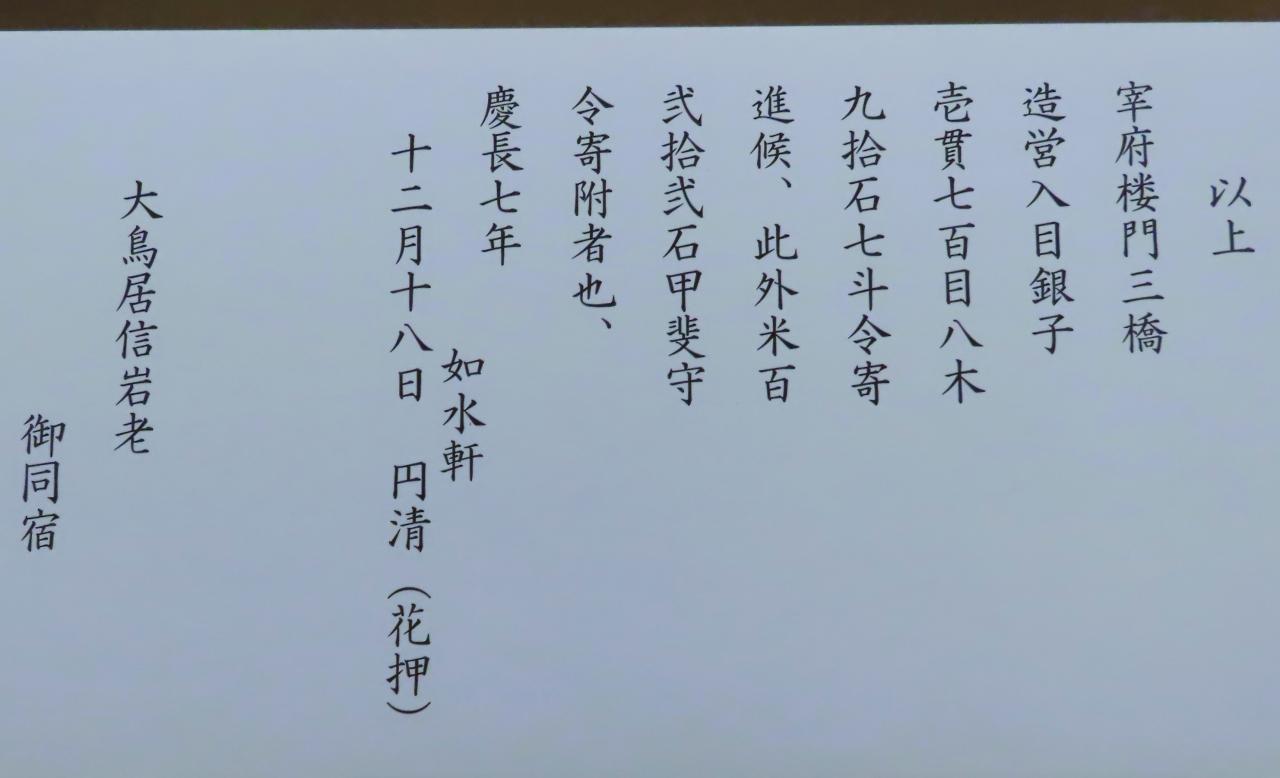 以上
宰府楼門三橋
造営入目銀子
壱貫七百目八木
九拾石七斗令寄
進候、此外米百
弐拾弐石甲斐守
令寄附者也、
慶長七年
如水軒
十二月十八日　円清（花押）
大鳥居信岩老
御同宿